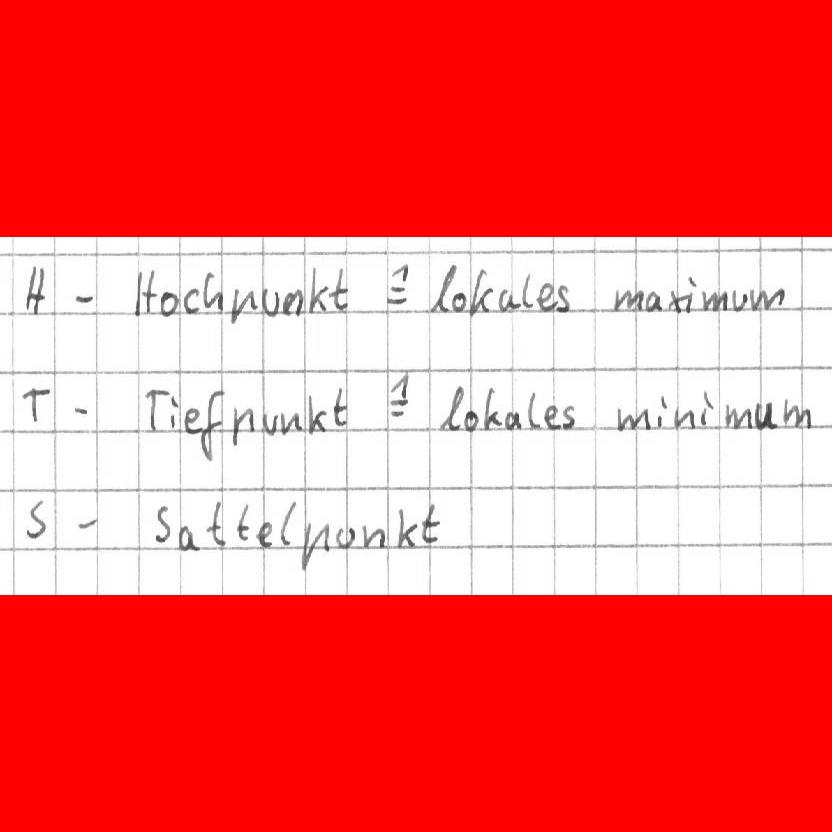 H - Hochpunkt ≙ lokales maximum
T - Tiefpunkt ≙ lokales minimum
S - Sattelpunkt